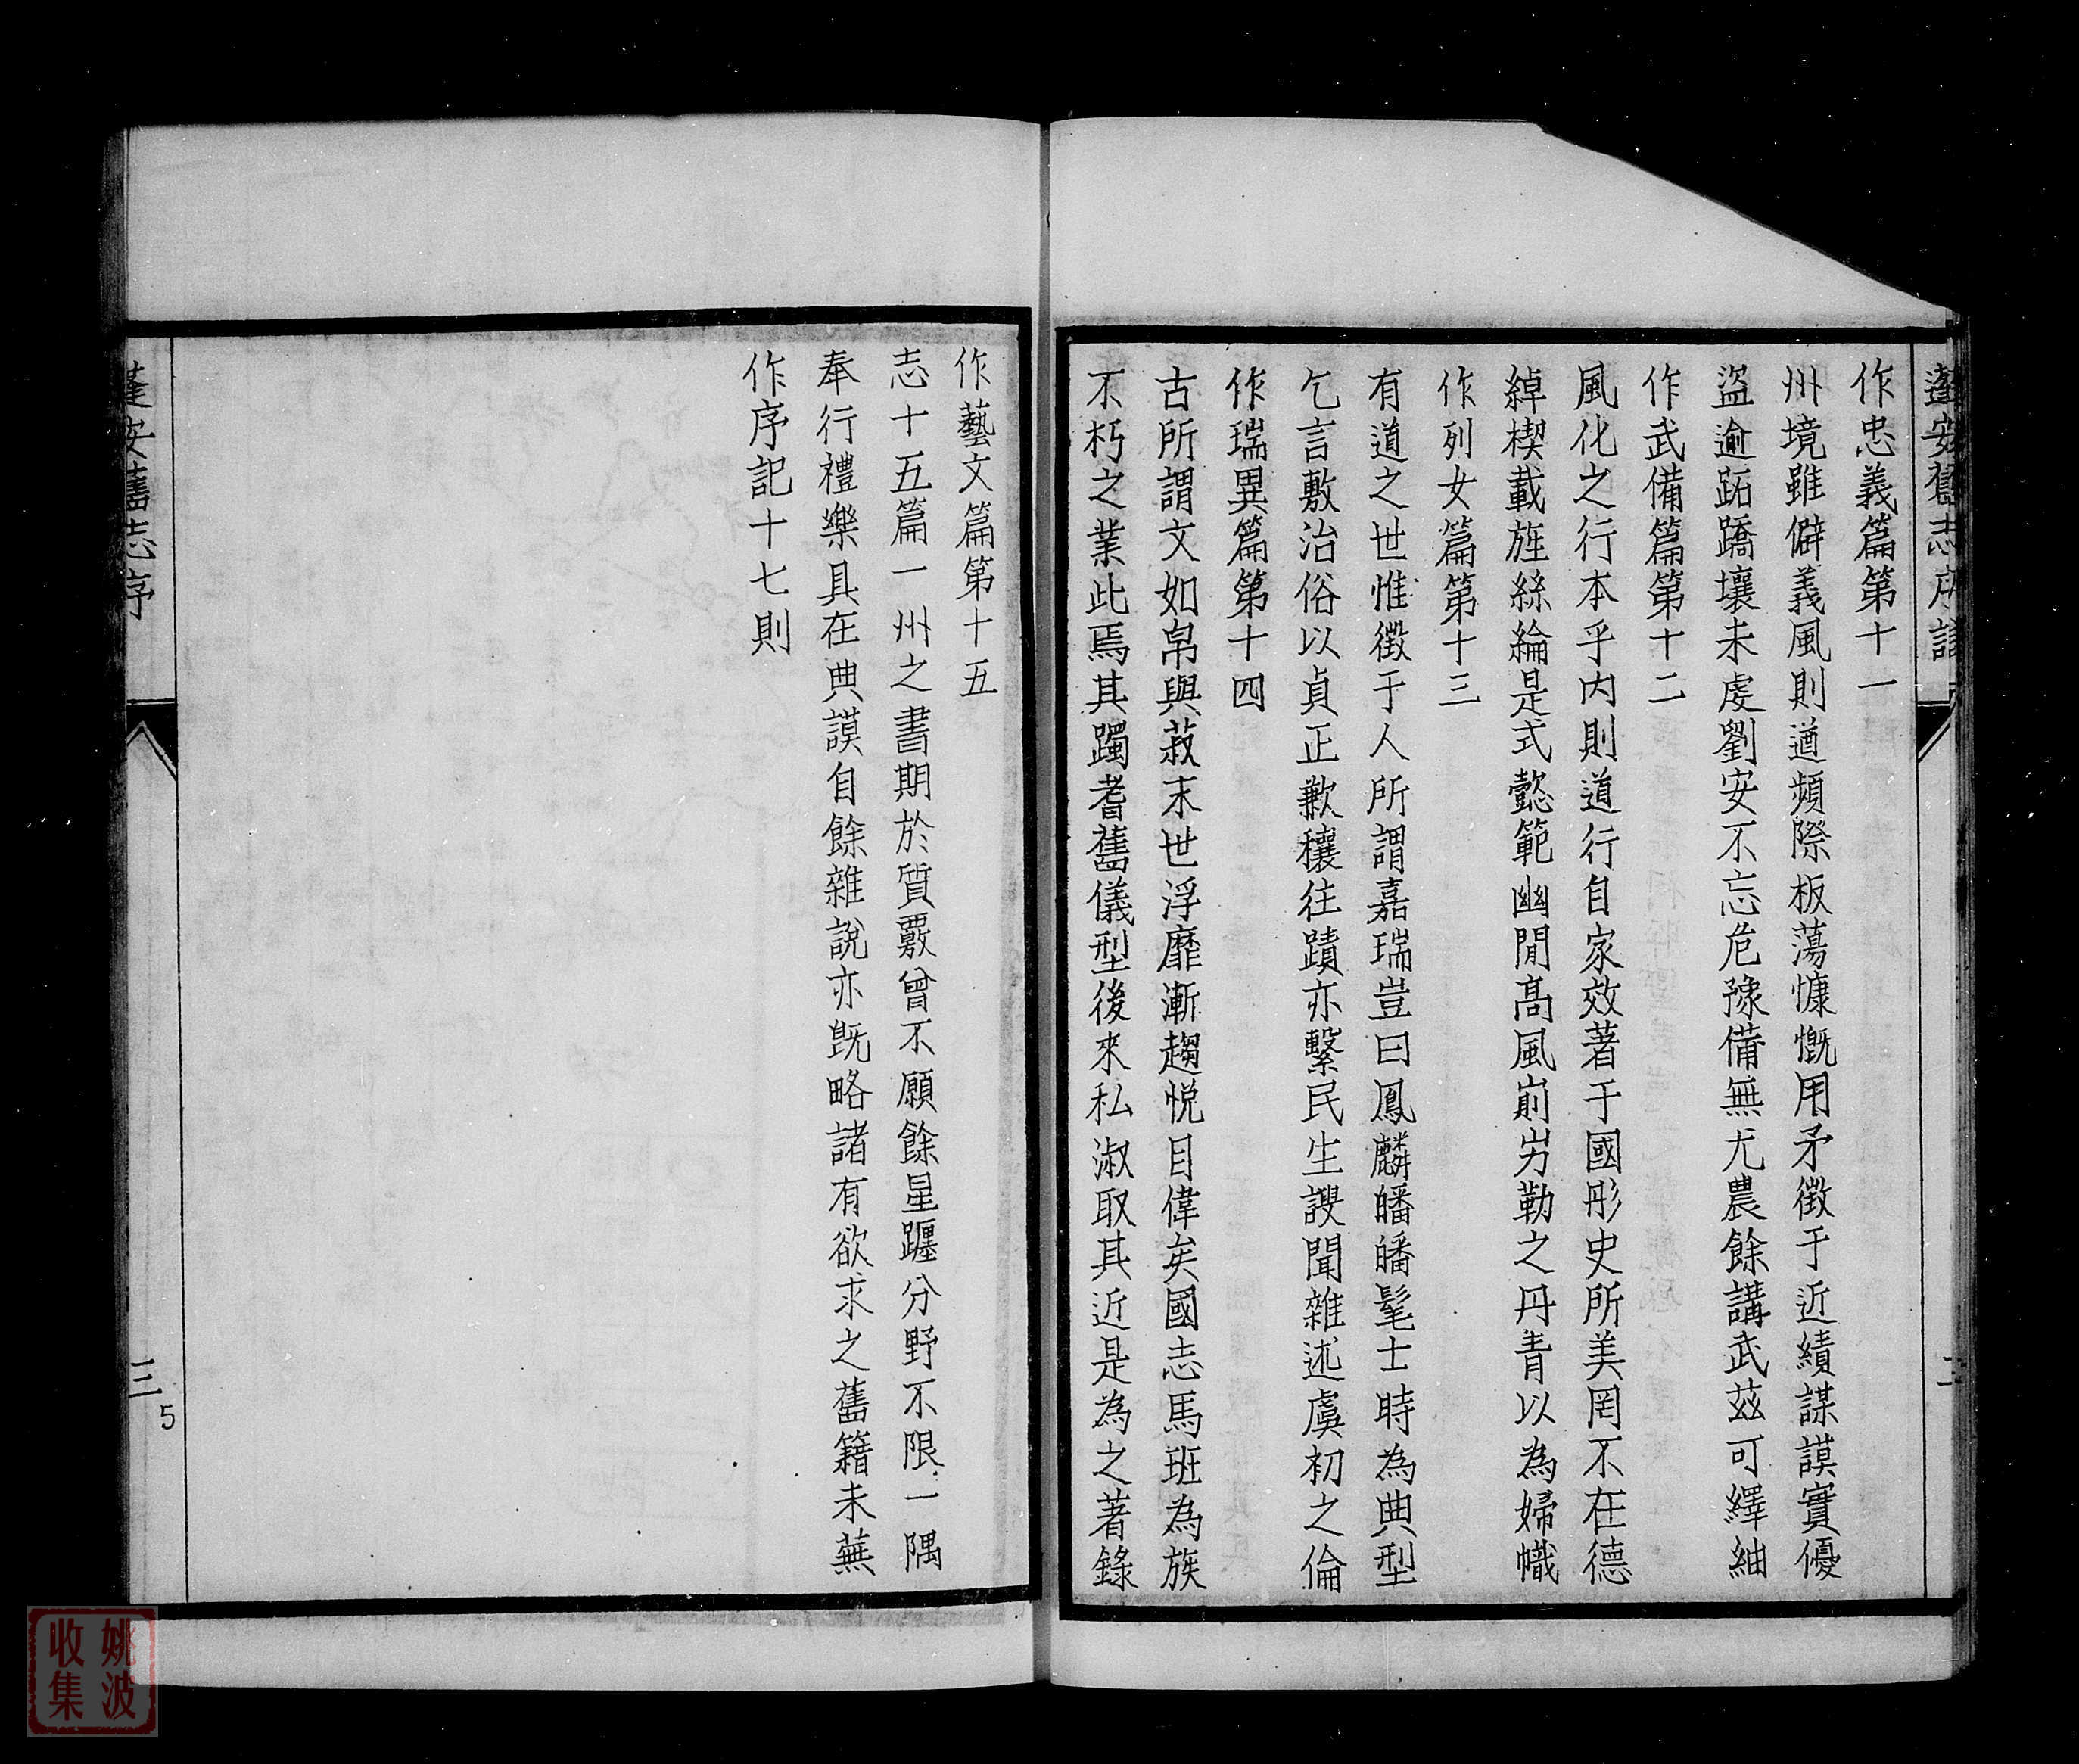 作忠義篇第十一
州境雖僻義風則遒頻際板蕩慷慨用矛徵于近績謀謨實優
盜逾跖蹻壤未虔劉安不忘危豫備無尤農餘講武茲可繹紬
作武備篇第十二
風化之行本乎内則道行自家效著于國彤史所美罔不在德
綽楔載旌絲綸是式懿範幽閒髙風崱屴勒之丹青以為婦幟
作列女篇第十三
有道之世惟徵于人所謂嘉瑞豈曰鳳麟皤皤髦士時為典型
乞言敷治俗以貞正歉穰往蹟亦繫民生謏聞雜述虞初之倫
作瑞異篇第十四
古所謂文如帛與菽末世浮靡漸趨悦目偉矣國志馬班為族
不朽之業此焉其躅耆舊儀型後來私淑取其近是為之著錄
作藝文篇第十五
志十五篇一州之書期於質覈曾不願餘星躔分野不限一隅
奉行禮樂具在典謨自餘雜說亦旣略諸有欲求之舊籍未蕪
作序記十七則
蓬安舊志序
三
5
姚波
收集